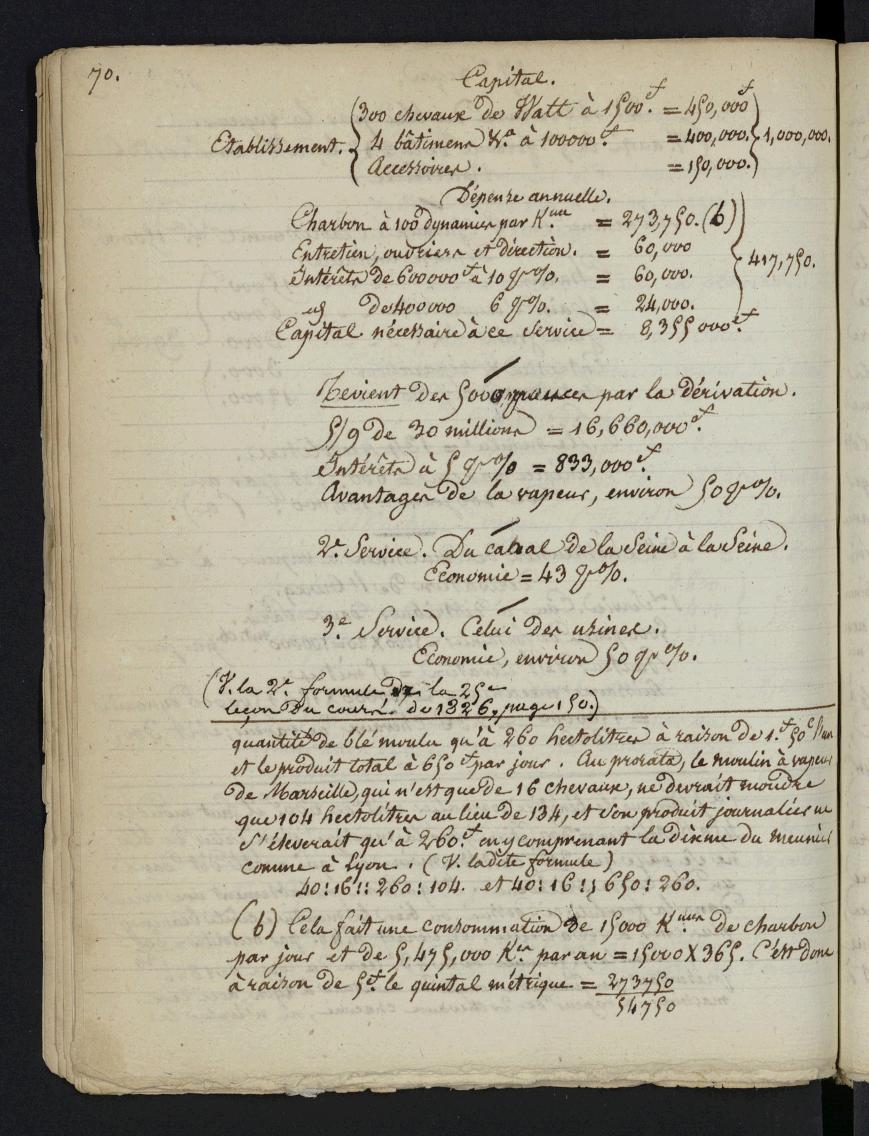 70.
Capital.
Etablissement. 300 chevaux de Watt à 1500.f = 450,000f
4 bâtimens &.a à 100000.f = 400,000. 1,000,000.
Accessoires. = 150,000.
Dépense annuelle.
Charbon à 100 dynamies par K.me = 273,750. (b)
Entretien, ouvriers et direction. = 60,000
Intérêts de 600000f à 10 p%. = 60,000. 417,750.
id de 400000 6 p%. = 24,000.
Capital nécessaire à ce Service = 8,355000.f
Revient des 5000 par la dérivation.
5/9 de 30 millions = 16,660,000f.
Intérêts à 5 p% = 833,000f.
Avantages de la vapeur, environ 50 p%.
2.e Service. Du canal de la Seine à la Seine.
Economie = 43 p%.
3.e Service. Celui des usines.
Economie, environ 50 p%.
(V. la 2.e formule de la 25e
leçon du cours. de 1826, page 150.)
quantité de blé moulu qu'à 260 hectolitres à raison de 1.f 50c l'un
et le produit total à 650f par jour. Au prorata, le moulin à vapeur
de Marseille, qui n'est que de 16 chevaux, ne devrait moudre
que 104 hectolitres au lieu de 134, et son produit journalier ne
s'éleverait qu'à 260.f en y comprenant la dixme du meunier
comme à Lyon. (V. ladite formule)
40:16::260:104. et 40:16::650:260.
(b) Cela fait une consommation de 15000 K.mes de charbon
par jour et de 5,475,000 K.es par an = 15000 X 365. C'est donc
à raison de 5f. le quintal métrique = 273750
54750